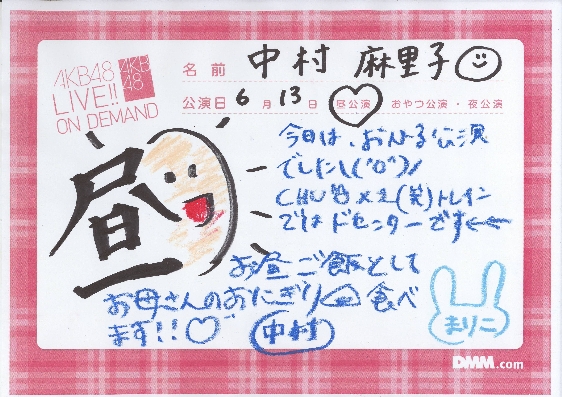 AKB48
LIVE!!
ON DEMAND
AKB
48
名前 中村 麻里子
公演日 6月13日 昼公演・おやつ公演・夜公演
昼
今日は、おひる公演
でした\(^o^)/
CHU
(笑)トレイン
ではドセンターです←←
お昼ご飯として
お母さんのおにぎり🍙食べ
ます!!♡
中村
まりこ
DMM.com